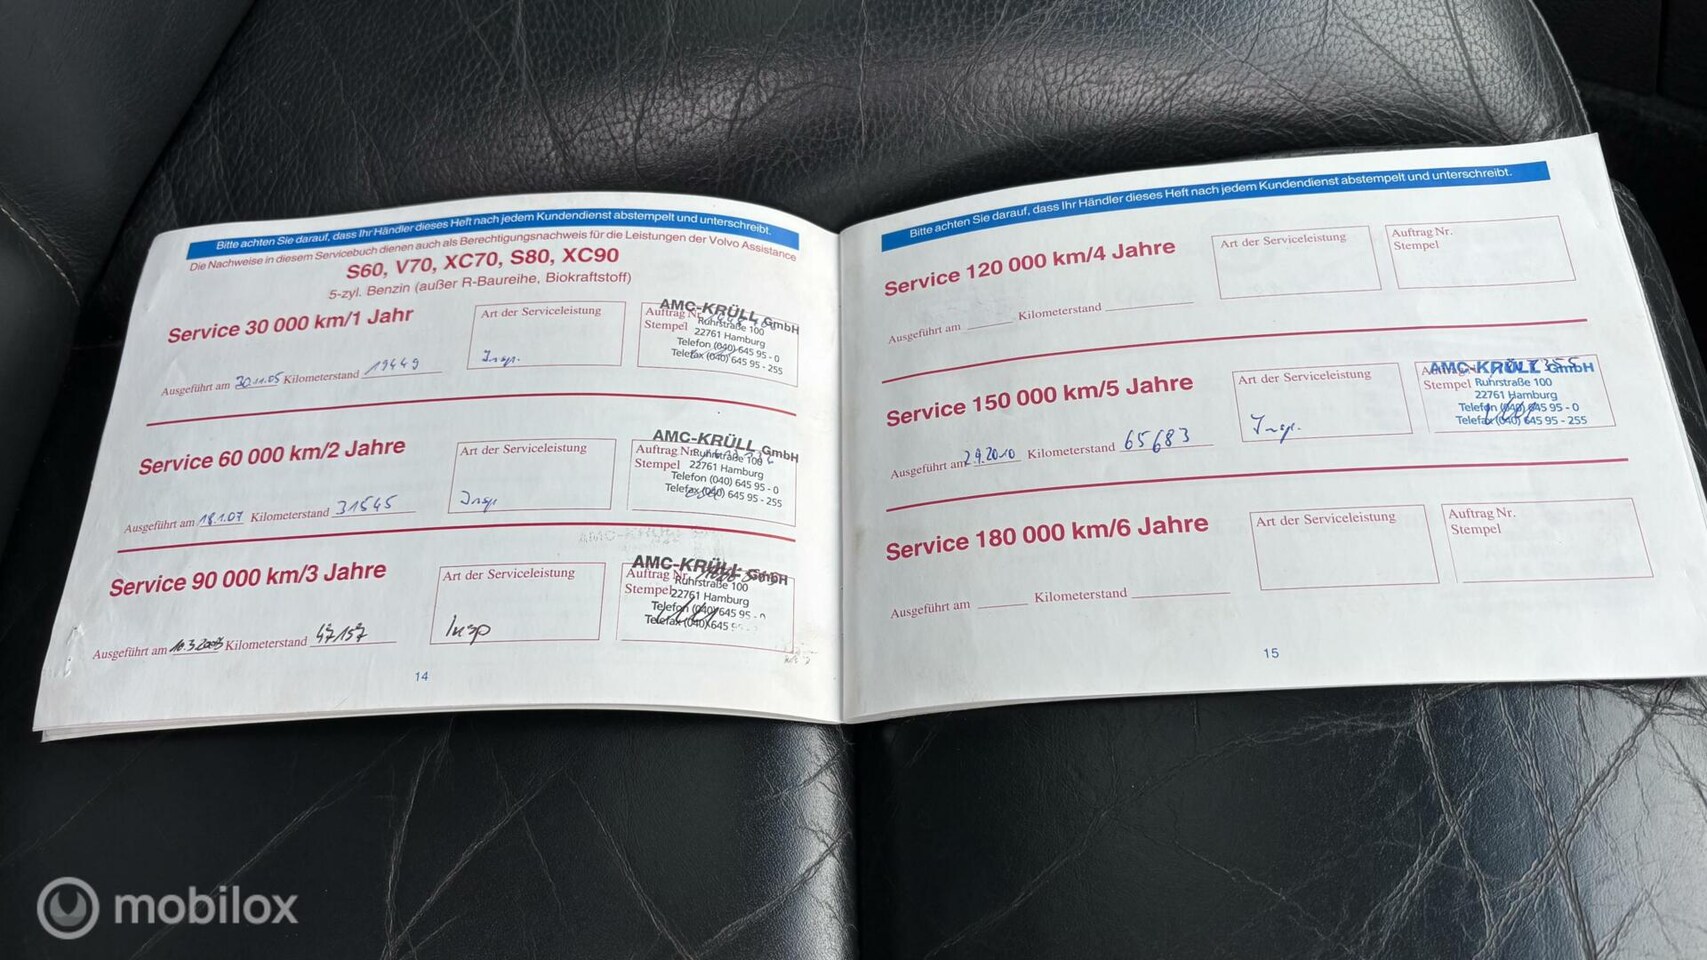 Bitte achten Sie darauf, dass Ihr Händler dieses Heft nach jedem Kundendienst abstempelt und unterschreibt.
Die Nachweise in diesem Servicebuch dienen auch als Berechtigungsnachweis für die Leistungen der Volvo Assistance
S60, V70, XC70, S80, XC90
5-zyl. Benzin (außer R-Baureihe, Biokraftstoff)
Service 30 000 km/1 Jahr
Art der Serviceleistung
Insp.
Auftrag Nr.
Stempel
AMC-KRÜLL GmbH
Ruhrstraße 100
22761 Hamburg
Telefon (040) 645 95 - 0
Telefax (040) 645 95 - 255
Ausgeführt am 30.11.05 Kilometerstand 19449
Service 60 000 km/2 Jahre
Art der Serviceleistung
Insp
Auftrag Nr.
Stempel
AMC-KRÜLL GmbH
Ruhrstraße 100
22761 Hamburg
Telefon (040) 645 95 - 0
Telefax (040) 645 95 - 255
Ausgeführt am 18.1.07 Kilometerstand 31545
Service 90 000 km/3 Jahre
Art der Serviceleistung
Insp
Auftrag Nr.
Stempel
AMC-KRÜLL GmbH
Ruhrstraße 100
22761 Hamburg
Telefon (040) 645 95 - 0
Telefax (040) 645 95
Ausgeführt am Kilometerstand 47157
14
Bitte achten Sie darauf, dass Ihr Händler dieses Heft nach jedem Kundendienst abstempelt und unterschreibt.
Service 120 000 km/4 Jahre
Art der Serviceleistung
Auftrag Nr.
Stempel
Ausgeführt am Kilometerstand
Service 150 000 km/5 Jahre
Art der Serviceleistung
Insp.
Stempel
AMC-KRÜLL GmbH
Ruhrstraße 100
22761 Hamburg
Telefon (040) 645 95 - 0
Telefax (040) 645 95 - 255
Ausgeführt am 2.9.2010 Kilometerstand 65683
Service 180 000 km/6 Jahre
Art der Serviceleistung
Auftrag Nr.
Stempel
Ausgeführt am Kilometerstand
15
mobilox